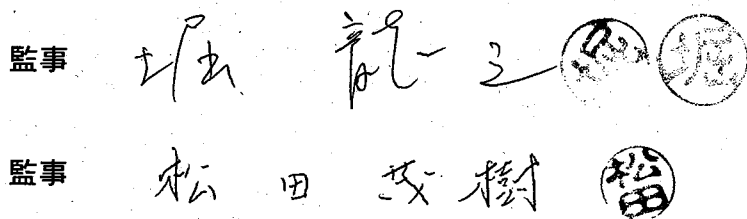 監事 堀 龍之 堀
監事 松田茂樹 松田